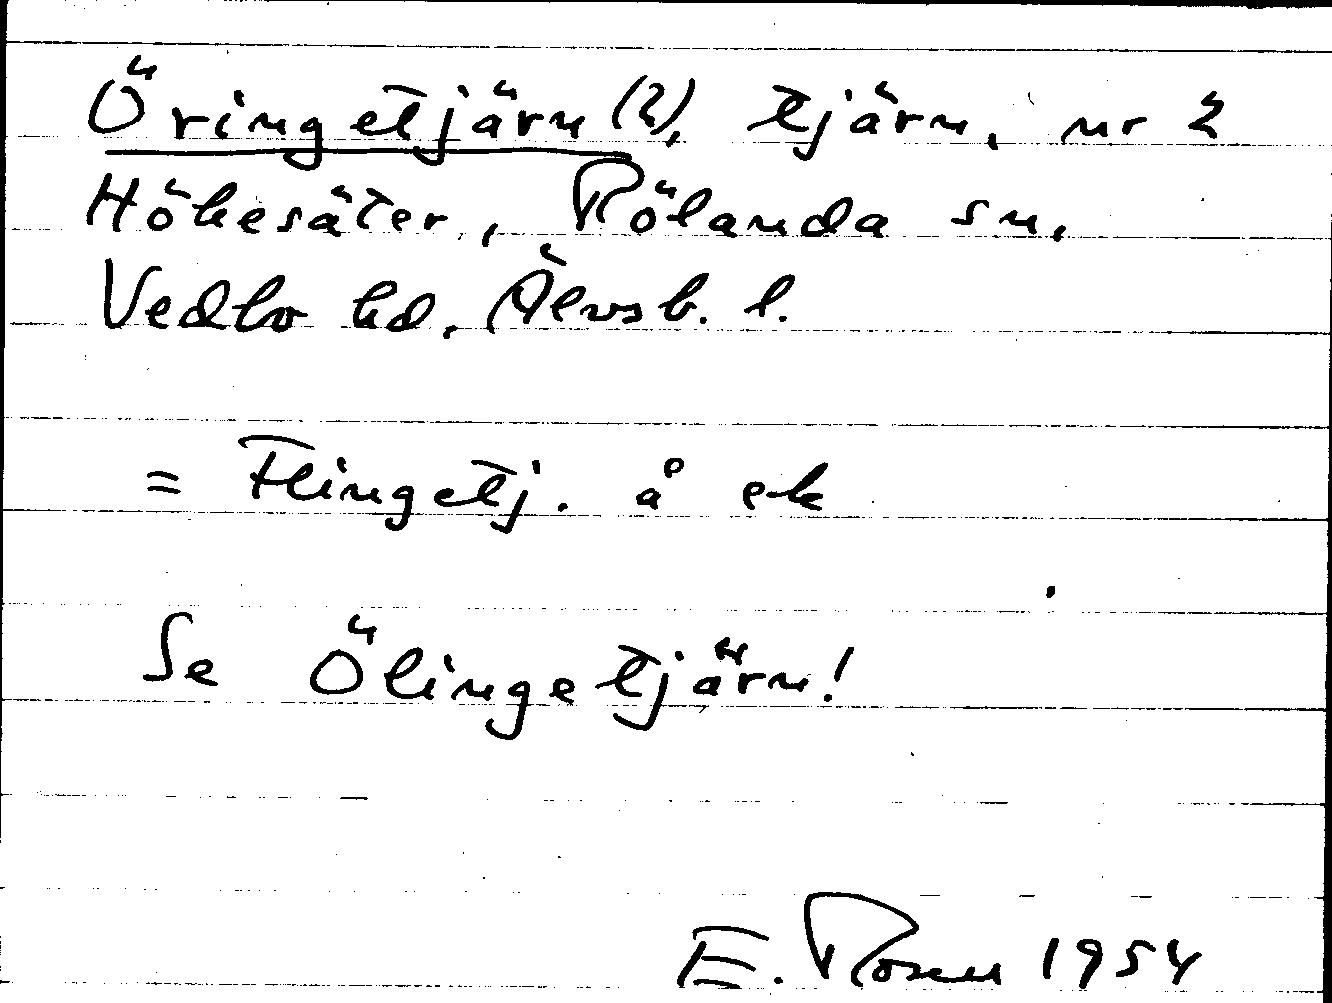 Öringetjärn (2), tjärn, nr 2
Hökesäter, Rölanda sn.
Vedbo hd. Älvsb. l.
= Flingetj. å ek
Se Ölingetjärn!
E. Rosen 1954